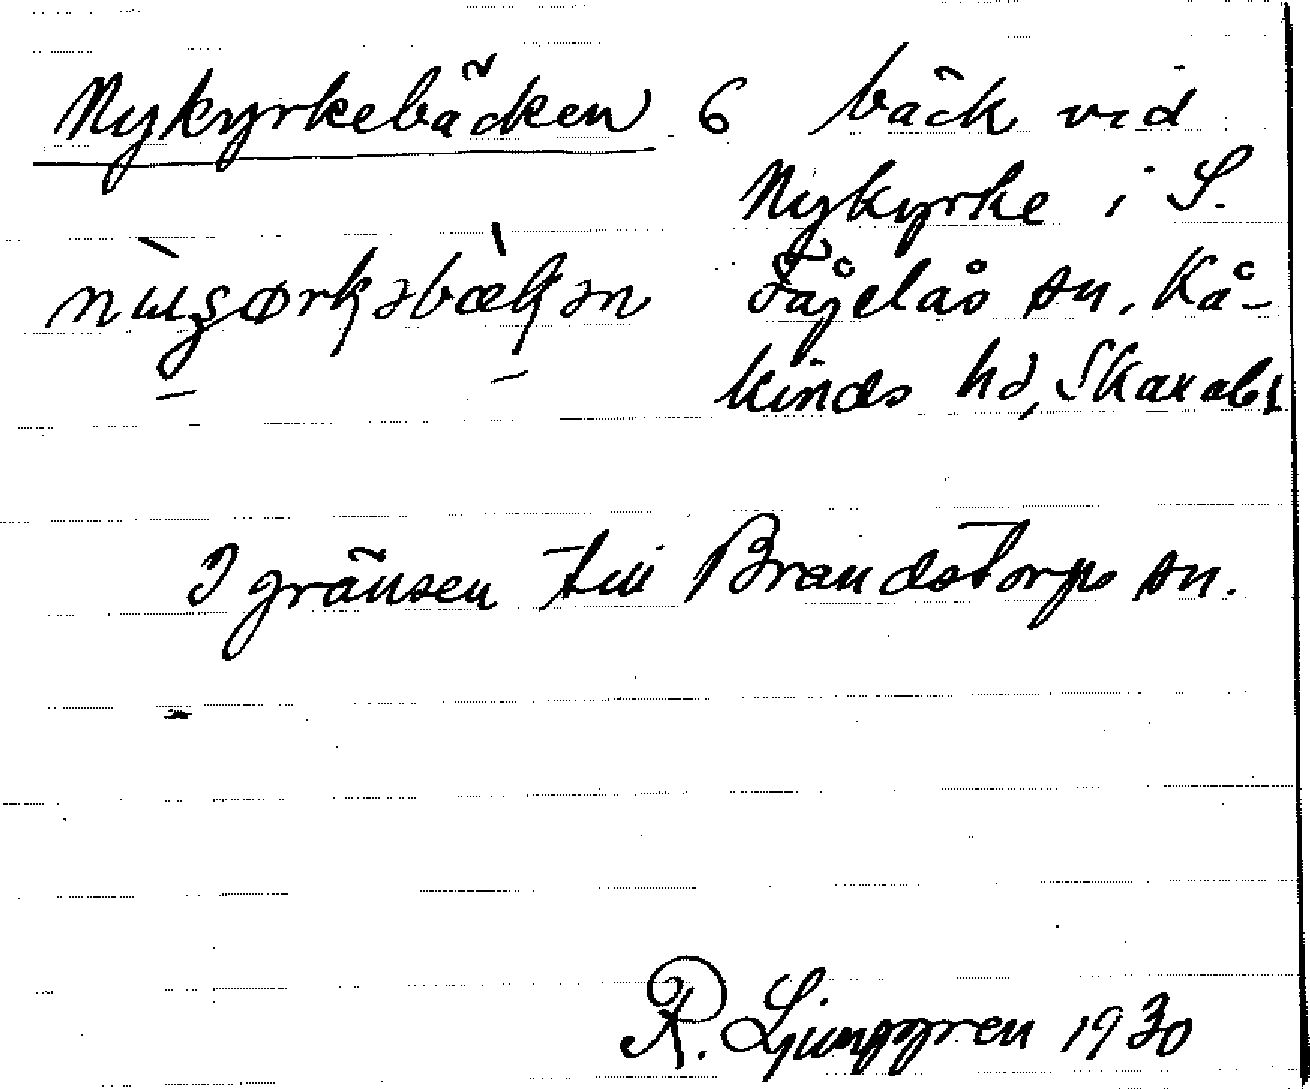 Nykyrkebäcken 6 bäck vid
Nykyrke i S.
Fågelås sn. Kå-
kinds hd, Skarabl.
I gränsen till Brandstorps sn.
R. Ljunggren 1930